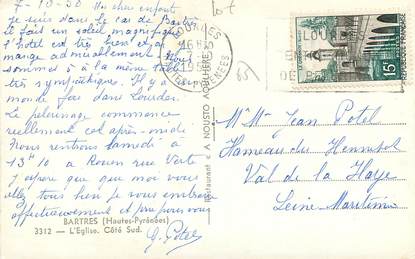 7-10-58 Mes chers enfants
Je suis dans le car de Bartrès
il fait un soleil magnifique
l'hotel est très bien et on
mange admirablement nous
sommes à la même table
très sympathiques. Il y a
monde fou dans Lourdes.
Le pelerinage commence
reellement cet après-midi
Nous rentrons samedi à
13h10 à Rouen rue Verte
J'espère que que moi vous
allez tous bien je vous embrasse
affectueusement et
G. Potel
BARTRES (Hautes-Pyrénées)
3312 — L'Eglise. Côté Sud.
Restaurant « A NOUSTO AOULHERE »
lot
65
LOURDES
16H
PYRENEES
LOU
DE
15F
Mr Mme Jean Potel
Hameau du
Val de la Haye
Seine Maritime